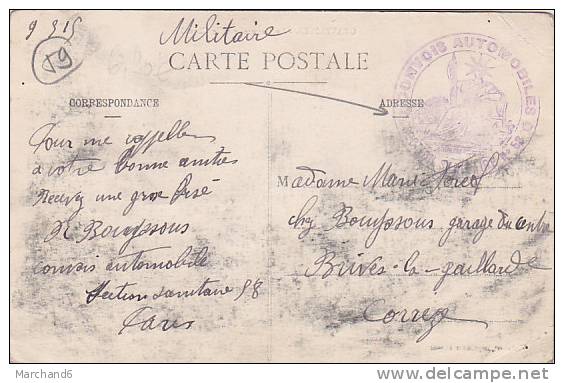 9 3 15
59
Militaire
CARTE POSTALE
CONVOIS AUTOMOBILES
CORRESPONDANCE
ADRESSE
Pour me rappeller
à votre bonne amitiés
Recevez une gros bisé
R Bouyssous
convois automobile
Section sanitaire 58
Paris
Madame Marie
chez Bouyssous garage du centre
Brives-la-gaillarde
Corrèze
Marchand6
delcampe.net